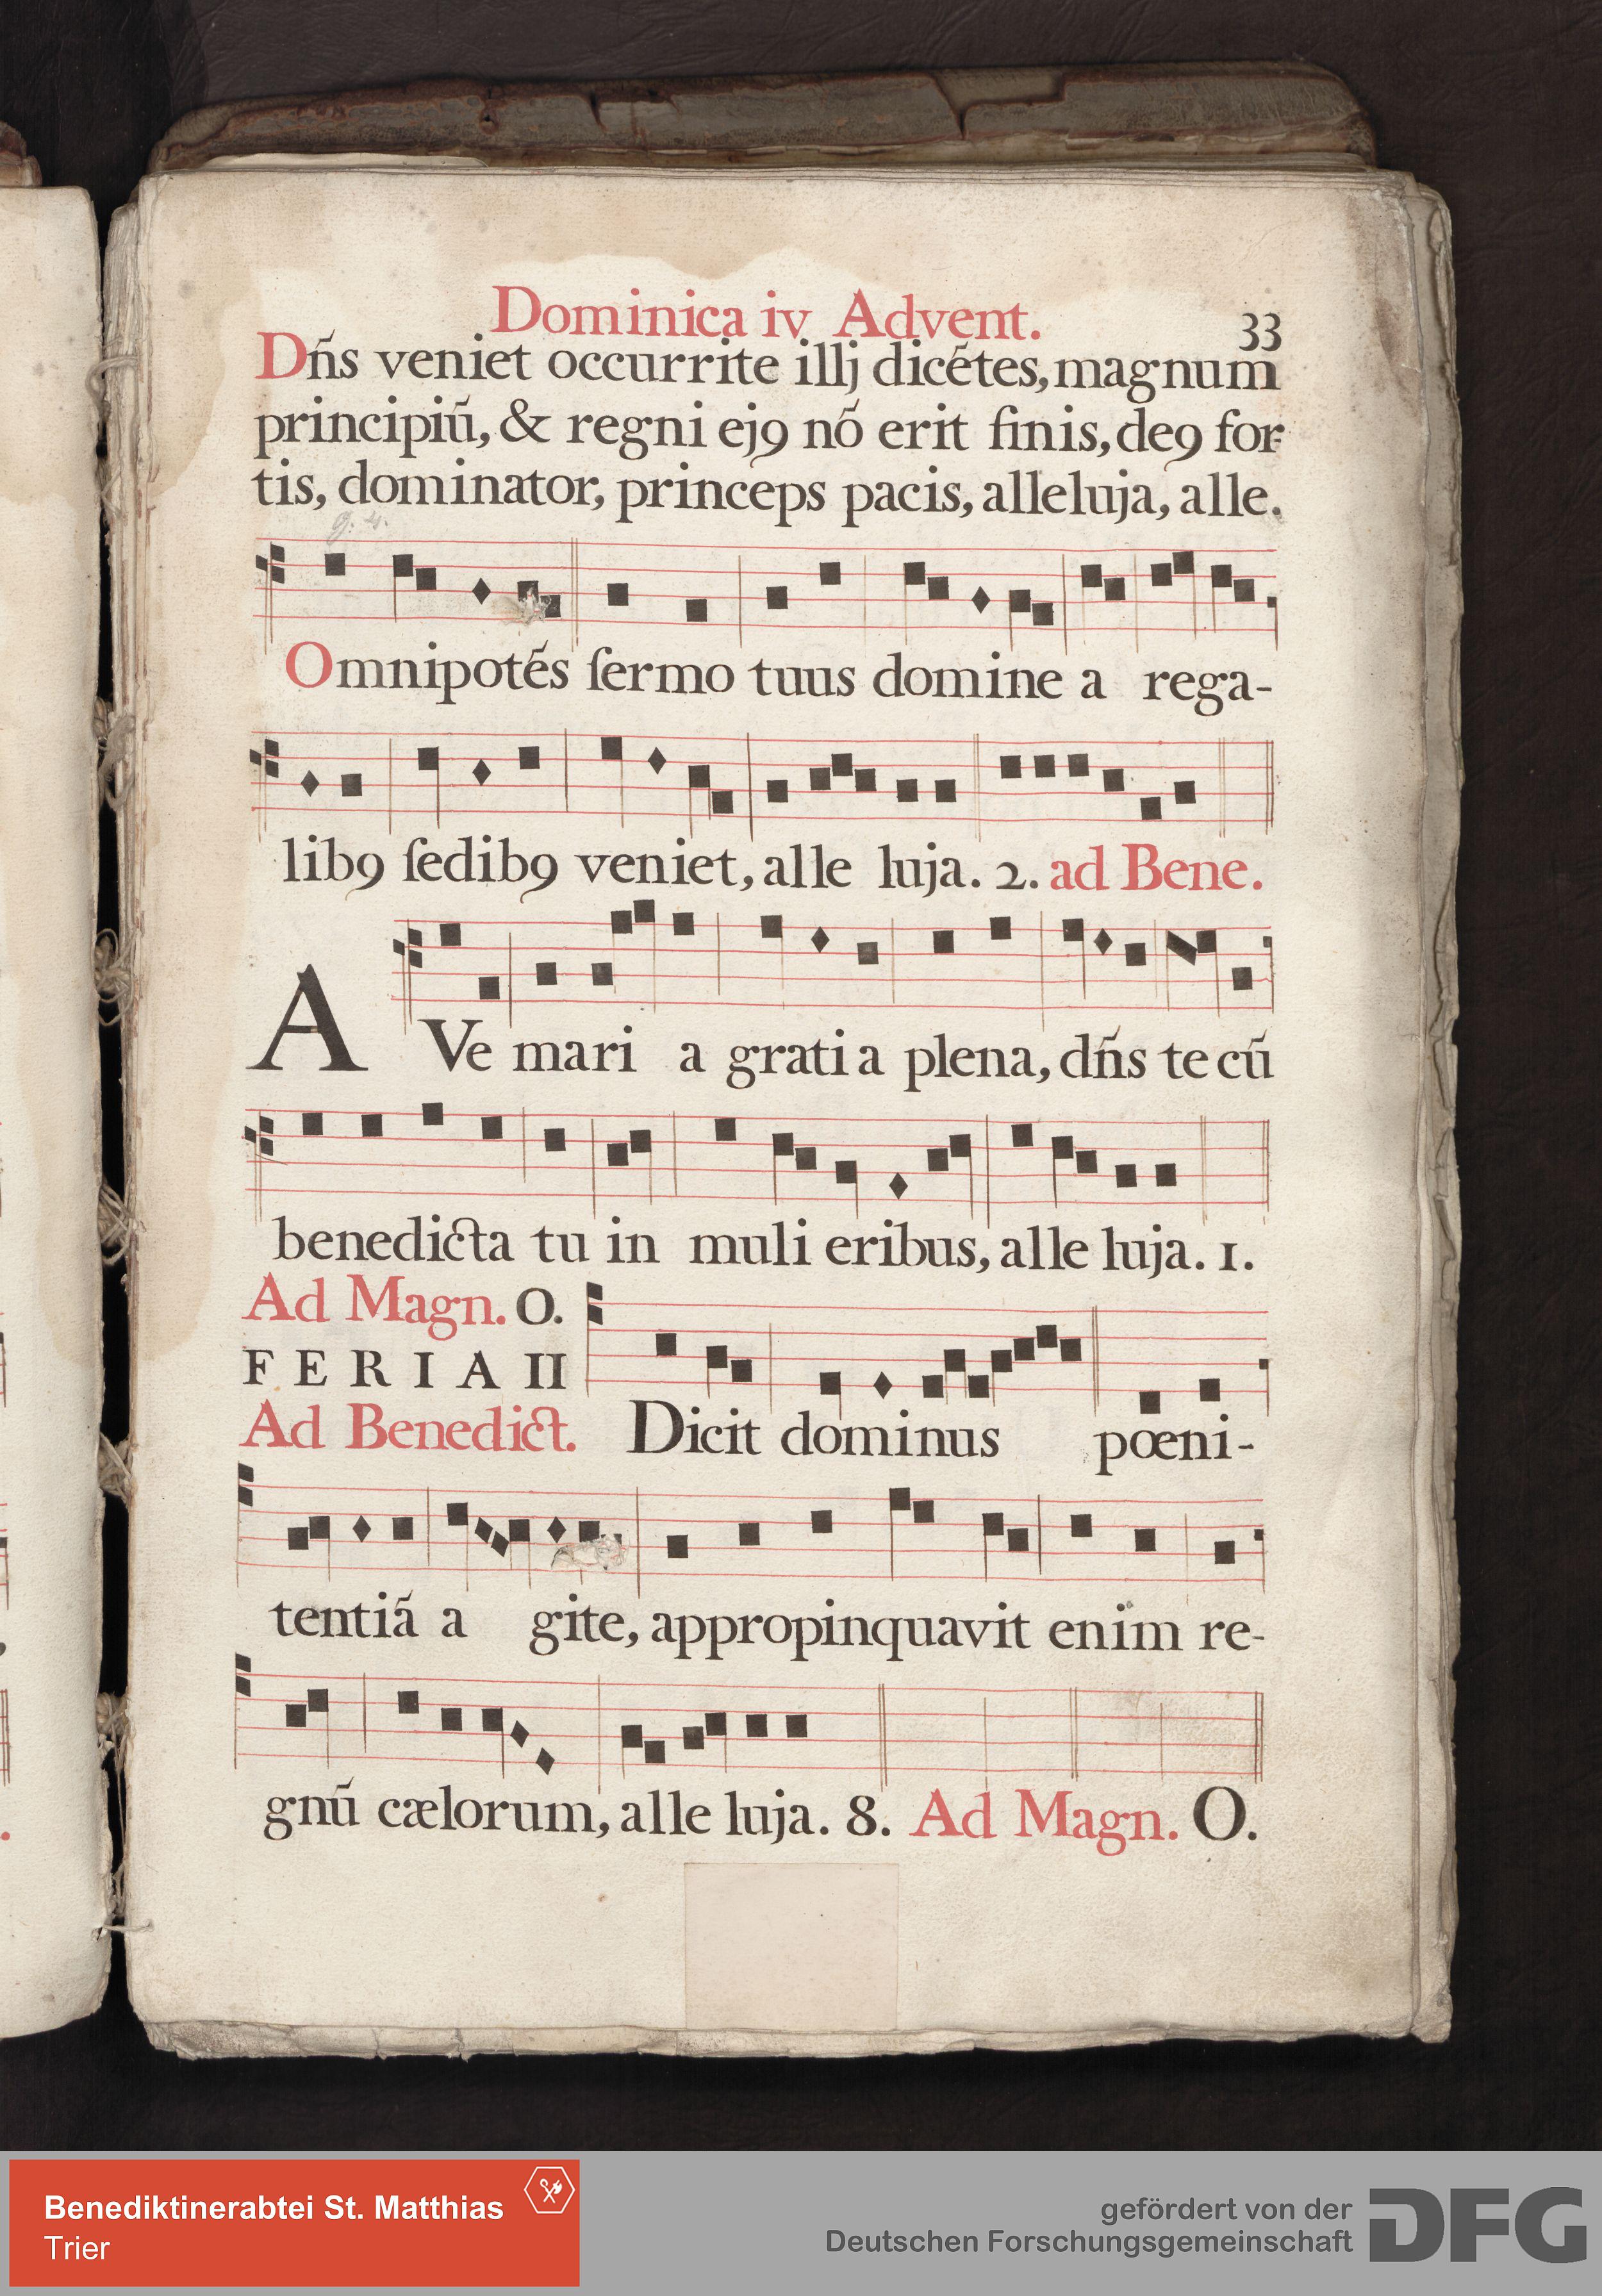 Dominica iv Advent. 33
Dn̄s veniet occurrite illj dicētes, magnum
principiū, & regni ejꝯ nō erit finis, deꝯ for-
tis, dominator, princeps pacis, alleluja, alle.
Omnipotēs ſermo tuus domine a rega-
libꝯ ſedibꝯ veniet, alle luja. 2. ad Bene.
AVe mari a grati a plena, dn̄s te cū
benedicta tu in muli eribus, alle luja. 1.
Ad Magn. O.
FERIA II
Ad Benedict. Dicit dominus pœni-
tentiā a gite, appropinquavit enim re-
gnū cælorum, alle luja. 8. Ad Magn. O.
Benediktinerabtei St. Matthias
Trier
gefördert von der
Deutschen Forschungsgemeinschaft
DFG